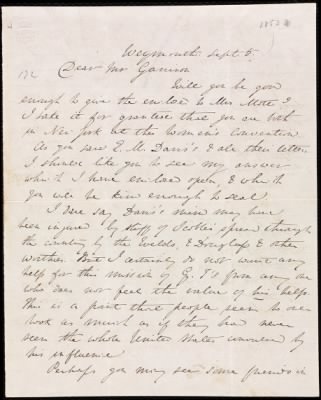 1853
Weymouth Sept 5.
Dear Mr Garrison
Will you be good
enough to give the enclosed to Mrs Mott?
I take it for granted that you are both
in New York at the Woman's Convention.
As you saw E. M. Davis's & ale their letters
I should like you to see my answer
which I have enclosed open, & which
you will be kind enough to seal.
I dare say Davis's mind may have
been injured by stuff of Scoble's spread through
the country by the Welds, & Douglass & other
worthies. But I certainly do not want any
help for this mission of G. T's from any one
who does not feel the value of his help.
This is a point that people seem to over
look as much as if they had never
seen the whole United States
his influence
Perhaps you may see some friends in